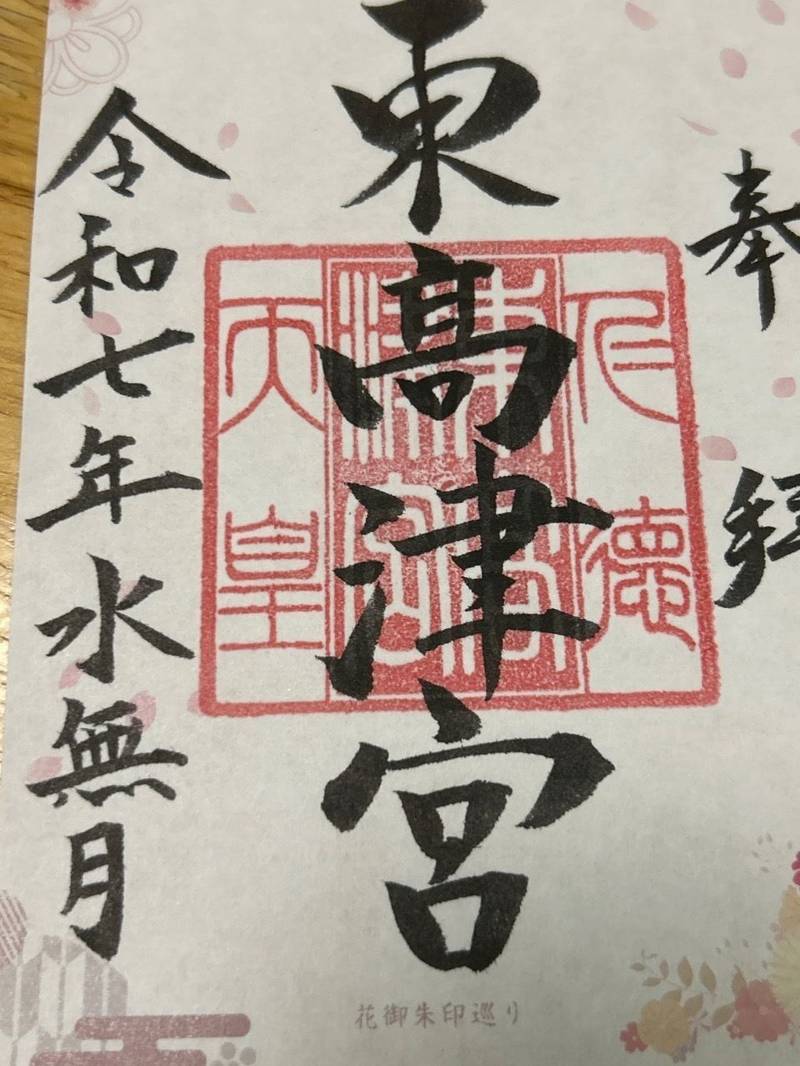 奉拝
東高津宮
仁徳
東高
津宮
天皇
令和七年水無月
花御朱印巡り